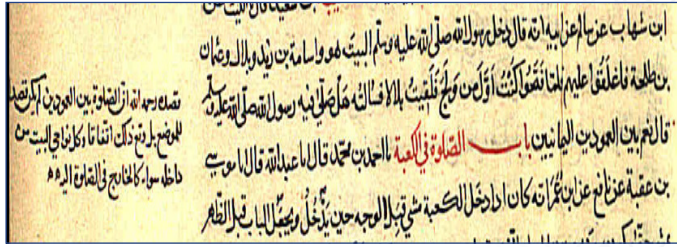 ابن شهاب عن سالم عن ابيه انه قال دخل رسول الله صلى الله عليه وسلم البيت هو واسامة بن زيد وبلال وعثمان
بن طلحة فاغلقوا عليهم فلما فتحوا كنت اول من ولج فلقيت بلالا فسالته هل صلى فيه رسول الله صلى الله عليه وسلم
قال نعم بين العمودين اليمانيين باب الصلوة في الكعبة احمد بن محمد قال انا عبد الله قال انا موسى
بن عقبة عن نافع عن ابن عمر انه كان اذا دخل الكعبة مشى قبل الوجه حين يدخل ويجعل الباب قبل الظهر
قصده رحمه الله ان الصلوة بين العمودين لم يكن قصدا
للموضع بل وقع ذلك اتفاقا وكل نواحي البيت من
داخله سواء كالخارج في الصلوة اليه